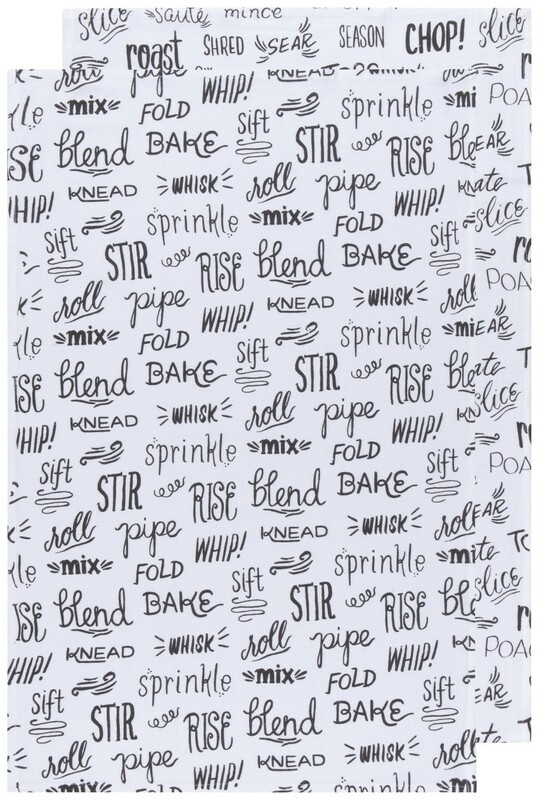 slice sauté mince
roast SHRED SEAR SEASON CHOP! slice
roll pipe WHIP! KNEAD WHISK
mix FOLD sprinkle mi POA
RISE blend BAKE sift STIR RISE ble EAR
KNEAD WHISK roll pipe WHIP! slice
WHIP! sift sprinkle mix FOLD sift
STIR RISE blend BAKE POA
roll pipe WHIP! KNEAD WHISK roll
mix FOLD sift sprinkle mi EAR
blend BAKE STIR RISE
KNEAD WHISK roll pipe WHIP! slice
HIP! sift sprinkle mix FOLD sift
STIR RISE blend BAKE POA
roll pipe WHIP! KNEAD WHISK EAR
mix FOLD sift sprinkle
RISE blend BAKE STIR RISE slice
KNEAD WHISK roll pipe WHIP! POA
WHIP! sift sprinkle mix FOLD sift EAR
STIR RISE blend BAKE
roll pipe WHIP! KNEAD WHISK
mix